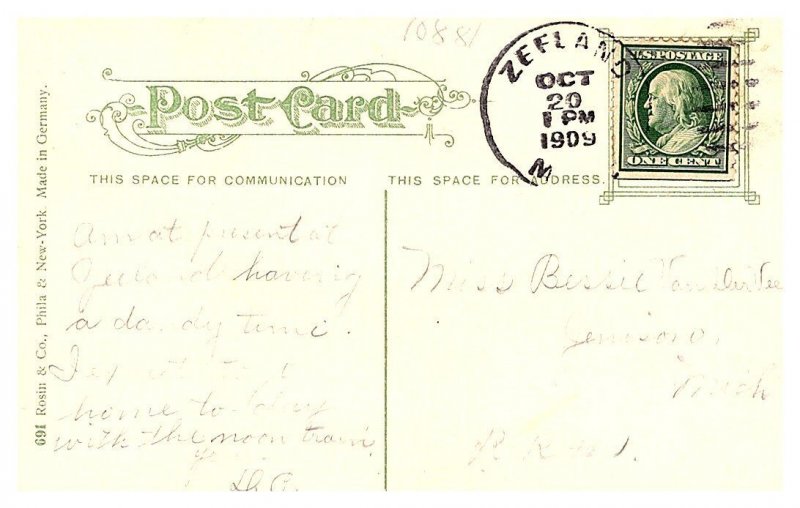 10881
ZEELAND
OCT
20
1 PM
1909
M
U.S. POSTAGE
ONE CENT
Post Card
THIS SPACE FOR COMMUNICATION
THIS SPACE FOR ADDRESS.
691 Rosin & Co., Phila & New-York. Made in Germany.
Am at present at
Zeeland having
a dandy time.
home to-day
with the noon train
Miss Bessie Van der Vee
Jenison,
Mich